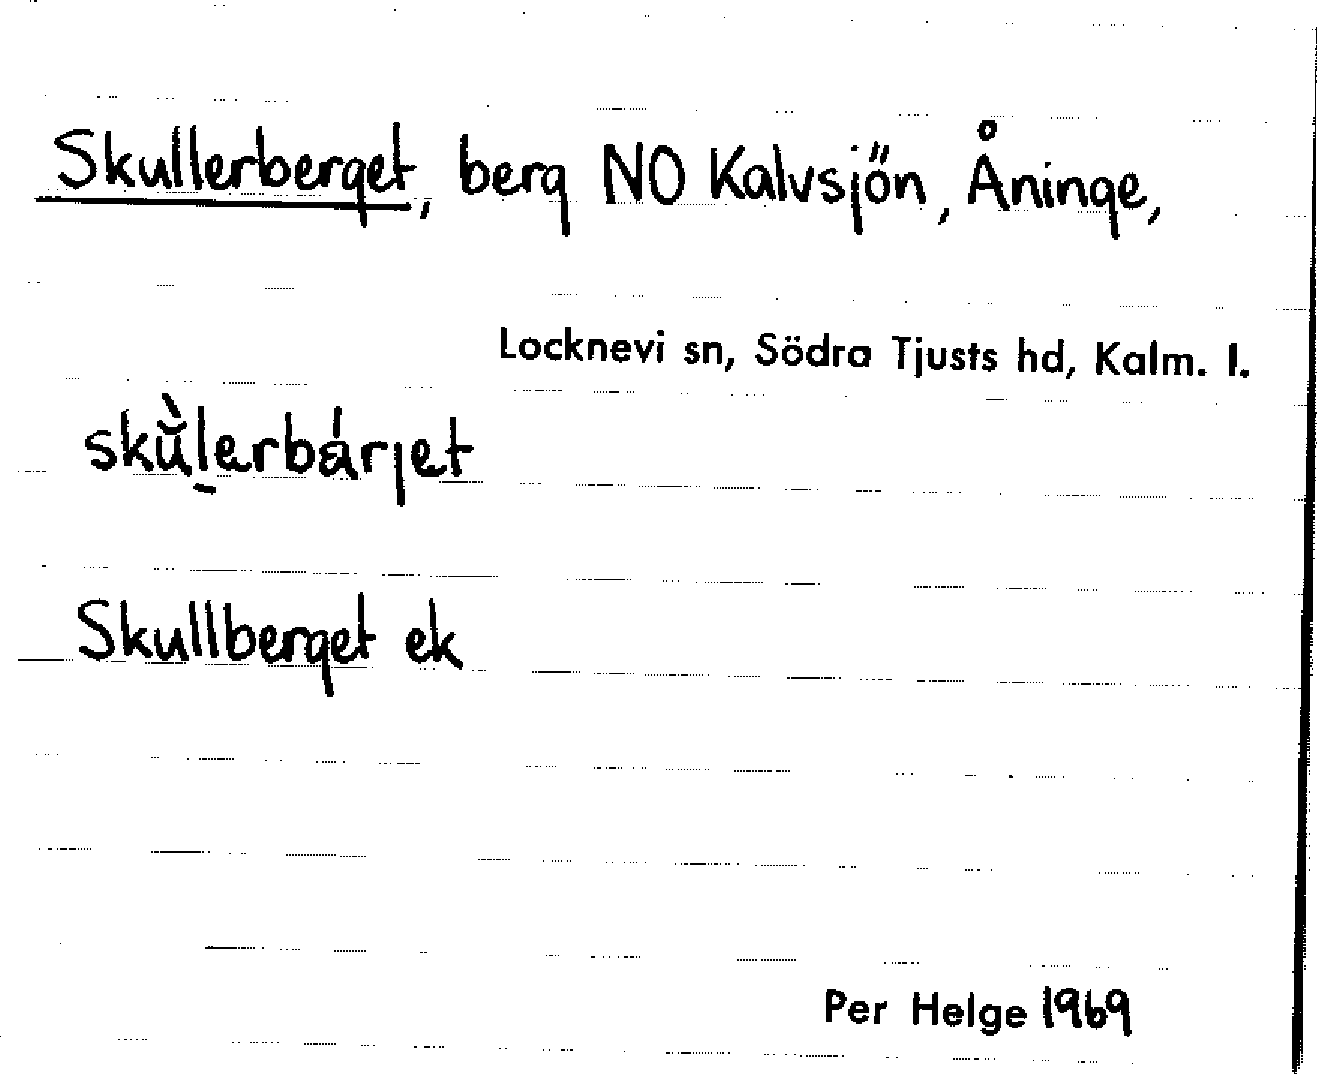 Skullerberget, berg NO Kalvsjön, Åninge,
Locknevi sn, Södra Tjusts hd, Kalm. l.
skù̆l̠erbárjet
Skullberget ek
Per Helge 1969